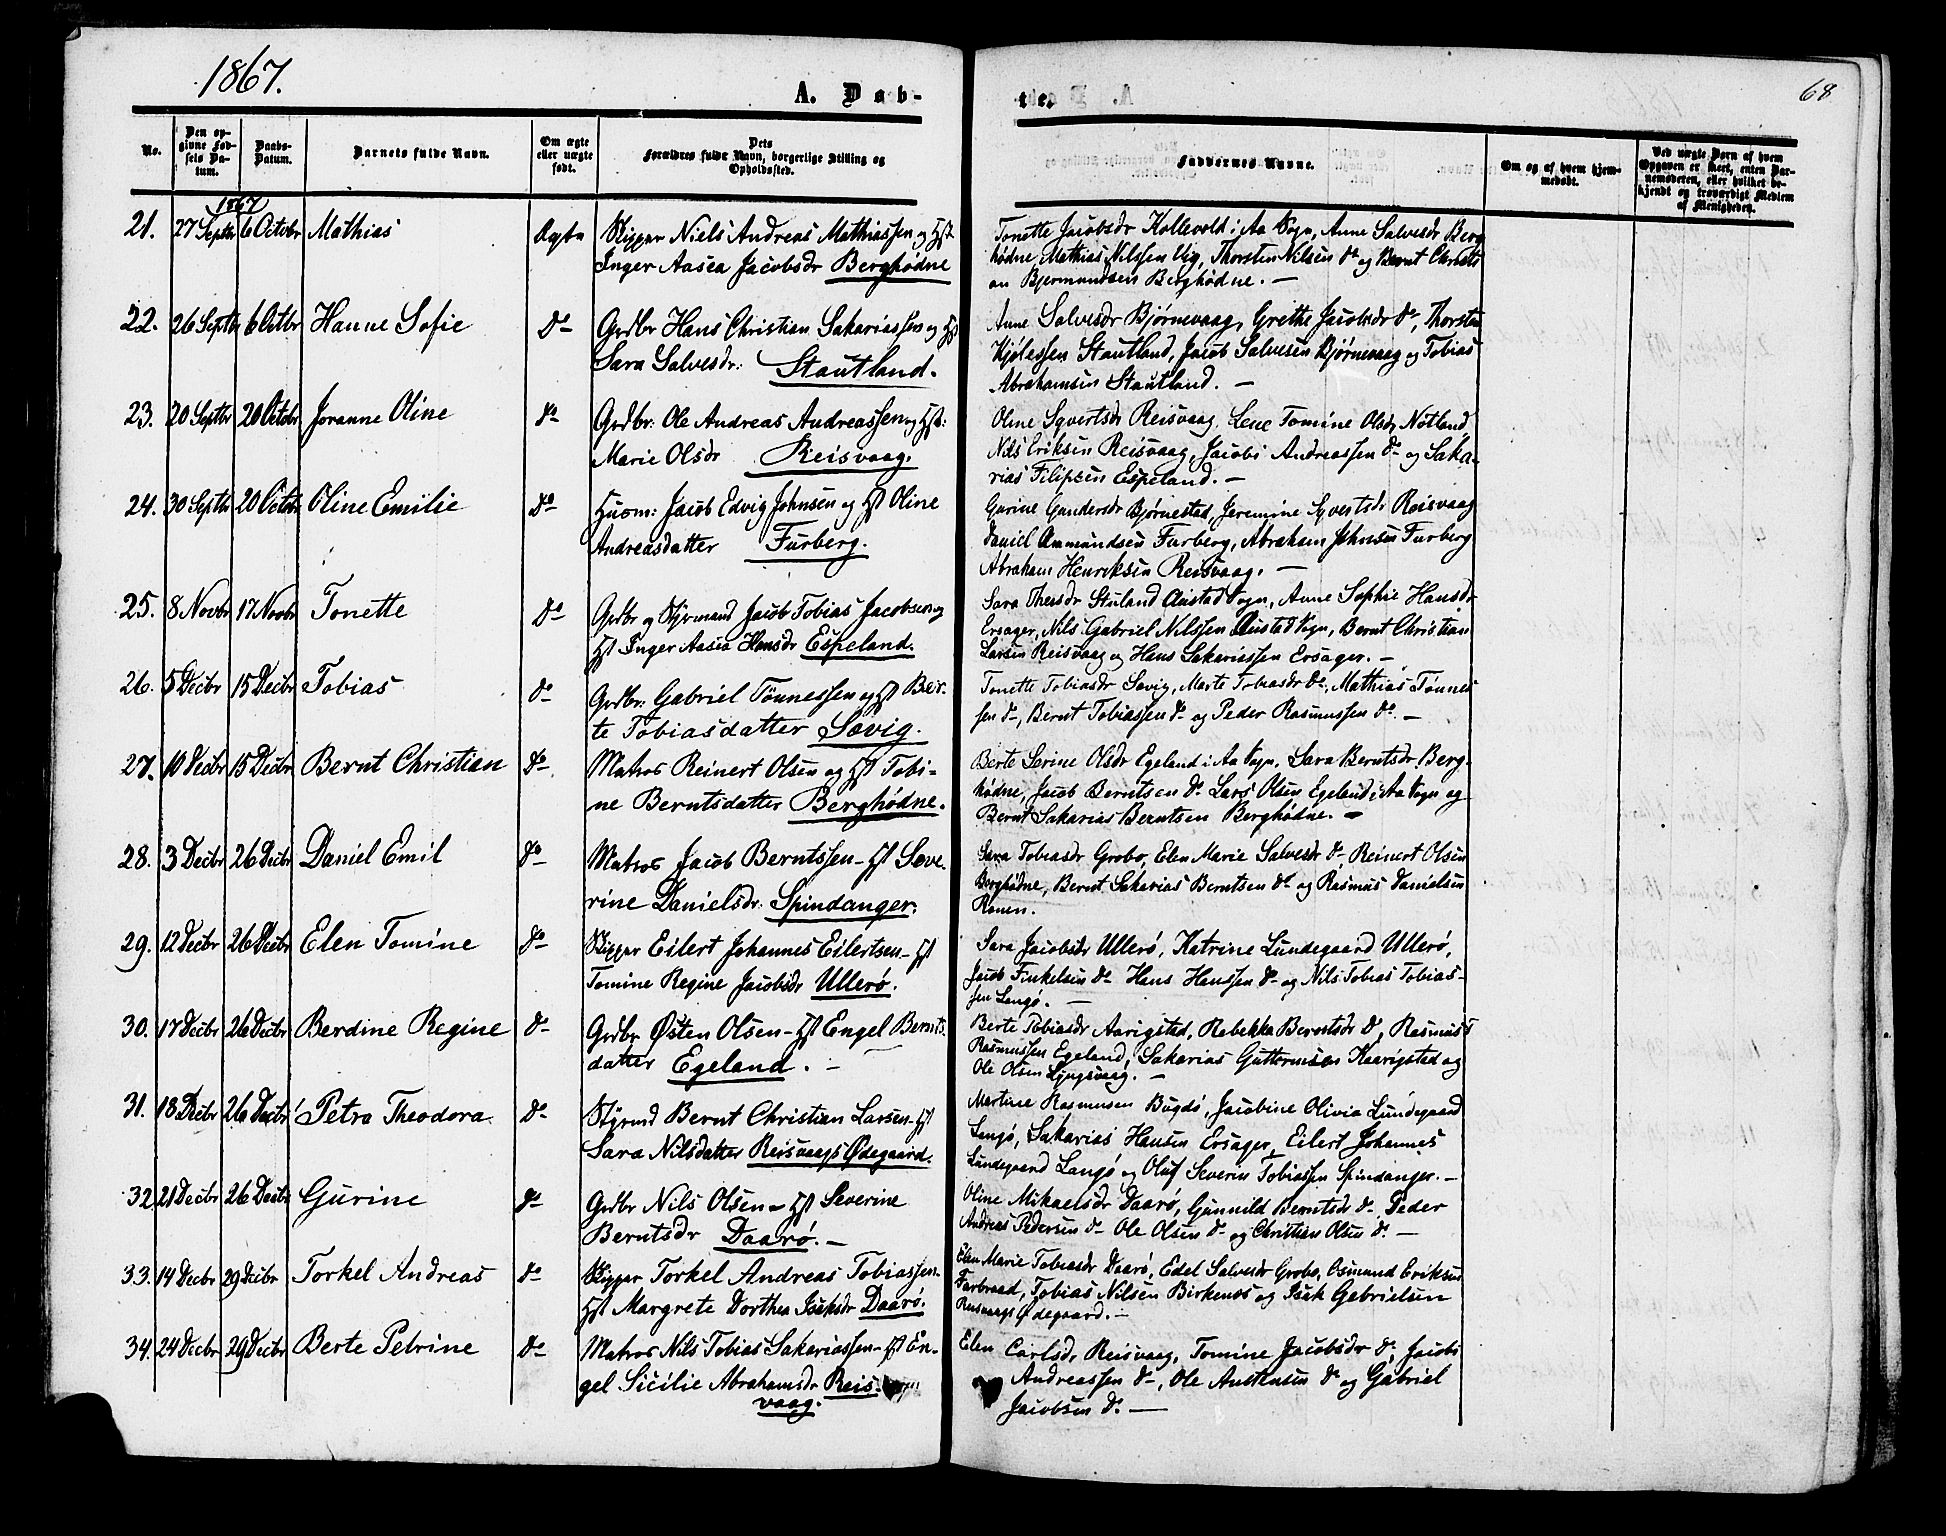 1867.
A. Dab-
te.
68
No.
Den opgivne Fødsels Datum.
Daabs-Datum.
Barnets fulde Navn.
Om ægte eller uægte født.
Dets Forældres fulde Navn, borgerlige Stilling og Opholdssted.
Faddernes Navne.
Om og af hvem hjemmedøbt.
Ved uægte Børn af hvem Opgaven er skeet, enten Barnemoderen, eller hvilket bekjendt og troværdigt Medlem af Menigheden.
1867
21. 27 Septbr 6 Octobr Mathias Ægte Skipper Niels Andreas Mathiassen og Hst
Inger Aasea Jacobsdr Berghødne
Tonette Jacobsdr Kollevold i Aa Sogn, Anne Salvesdr Berg
hødne, Mathias Nilssen Vig, Thorsten Nilsen do og Bernt Christi
an Bjermundsen Berghødne. —
22. 26 Septbr 6 Octbr Hanne Sofie Do Grdbr Hans Christian Sakariassen og Hst
Sara Salvesdr: Stautland.
Anne Salvesdr Bjørnevaag, Grethe Jacobsdr do, Thorsten
Kjølessen Stautland, Jacob Salvesen Bjørnevaag og Tobias
Abrahamsen Stautland. —
23. 20 Septbr 20 Octobr Joranne Oline do Grdbr: Ole Andreas Andreassen og Hst:
Marie Olsdr Reisvaag.
Oline Syvertsdr Reisvaag, Lene Tomine Olsdr Nøtland
Nils Eriksen Reisvaag, Jacob Andreassen do og Saka-
rias Filipsen Espeland. —
24. 30 Septbr 20 Octobr Oline Emilie Do Huusm: Jacob Edvig Johnsen og Hst Oline
Andreasdatter Furberg.
Gurine Gundersdr Bjørnestad, Jeremine Syvertsdr Reisvaag
Daniel Ammundsen Furberg, Abraham Johnsen Furberg
Abraham Henriksen Reisvaag. —
25. 8 Novbr 17 Novbr Tonette Do Grdbr og Styrmand Jacob Tobias Jacobsen og
Hst Inger Aasea Hansdr Espeland.
Sara Thersdr Stuland Austad Sogn, Anne Sophie Hansdr
Ersager, Nils Gabriel Nilssen Austad Sogn, Bernt Christian
Larsen Reisvaag og Hans Sakariassen Ersager. —
26. 5 Decbr 15 Decbr Tobias do Grdbr: Gabriel Tønnessen og Hst Ber-
te Tobiasdatter Sævig.
Tonette Tobiasdr Sævig, Marte Tobiasdr do, Mathias Tønnes
sen do, Bernt Tobiassen do og Peder Rasmussen do. —
27. 10 Decbr 15 Decbr Bernt Christian Do Matros Reinert Olsen og Hst Tobi-
ne Berntsdatter Berghødne.
Berte Serine Olsdr Egeland i Aa Sogn, Sara Berntsdr Berg-
hødne, Jacob Berntsen do Lars Olsen Egeland i Aa Sogn og
Bernt Sakarias Berntsen Berghødne. —
28. 3 Decbr 26 Decbr Daniel Emil do Matros Jacob Berntssen - Hst Seve-
rine Danielsdr: Spindanger.
Sara Tobiasdr Grobo, Elen Marie Salvesdr do, Reinert Olsen
Berghødne, Bernt Sakarias Berntsen do og Rasmus Danielsen
Ronen.
29. 12 Decbr 26 Decbr Elen Tomine do Skipper Eilert Johannes Eilertsen - Hst
Tomine Regine Jacobsdr Ullerø.
Sara Jacobsdr Ullerø, Katrine Lundegaard Ullerø,
Jacob Finkelsen do Hans Hanssen do og Nils Tobias Tobias-
sen Langø. —
30. 17 Decbr 26 Decbr Berdine Regine do Grdbr Østen Olsen - Hst Engel Bernts-
datter Egeland. —
Berte Tobiasdr Aarigsted, Rebekka Berntsdr do, Rasmus T
Rasmussen Egeland, Sakarias Guttormsen Kaarigsted og
Ole Olsen Ljugsvaag. —
31. 18 Decbr 26 Decbr Petra Theodora Do Styrmd Bernt Christian Larsen - Hst
Sara Nilsdatter Reisvaags Ødegaard.
Martine Rasmusen Bugdø, Jacobine Olivia Lundegaard
Langø, Sakarias Hansen Ersager, Eilert Johannes
Lundegaard Langø og Oluf Severin Tobiassen Spindanger. —
32 21 Decbr 26 Decbr Gurine do Grdbr Nils Olsen - Hst Severine
Berntsdr Daarø. —
Oline Mikaelsdr Daarø, Gunnild Berntsdr do, Peder
Andreas Pedersen do Ole Olsen do og Christian Olsen do. —
33. 14 Decbr 29 Decbr Torkel Andreas do Skipper Torkel Andreas Tobiassen.
Hst Margrete Dorthea Isaksdr Daarø.
Elen Marie Tobiasdr Daarø, Edel Salvesdr Grobo, Osmund Eriksen
Farbraad, Tobias Nilsen Birkenes og Isak Gabrielsen
Reisvaags Ødegaard. —
34. 24 Decbr 29 Decbr Berte Petrine Do Matros Nils Tobias Sakariassen - Hst En-
gel Sicilie Abrahamsdr Reis-
vaag.
Elen Carlsdr Reisvaag, Tomine Jacobsdr do, Jacob
Andreassen do, Ole Austensen do og Gabriel
Jacobsen do. —